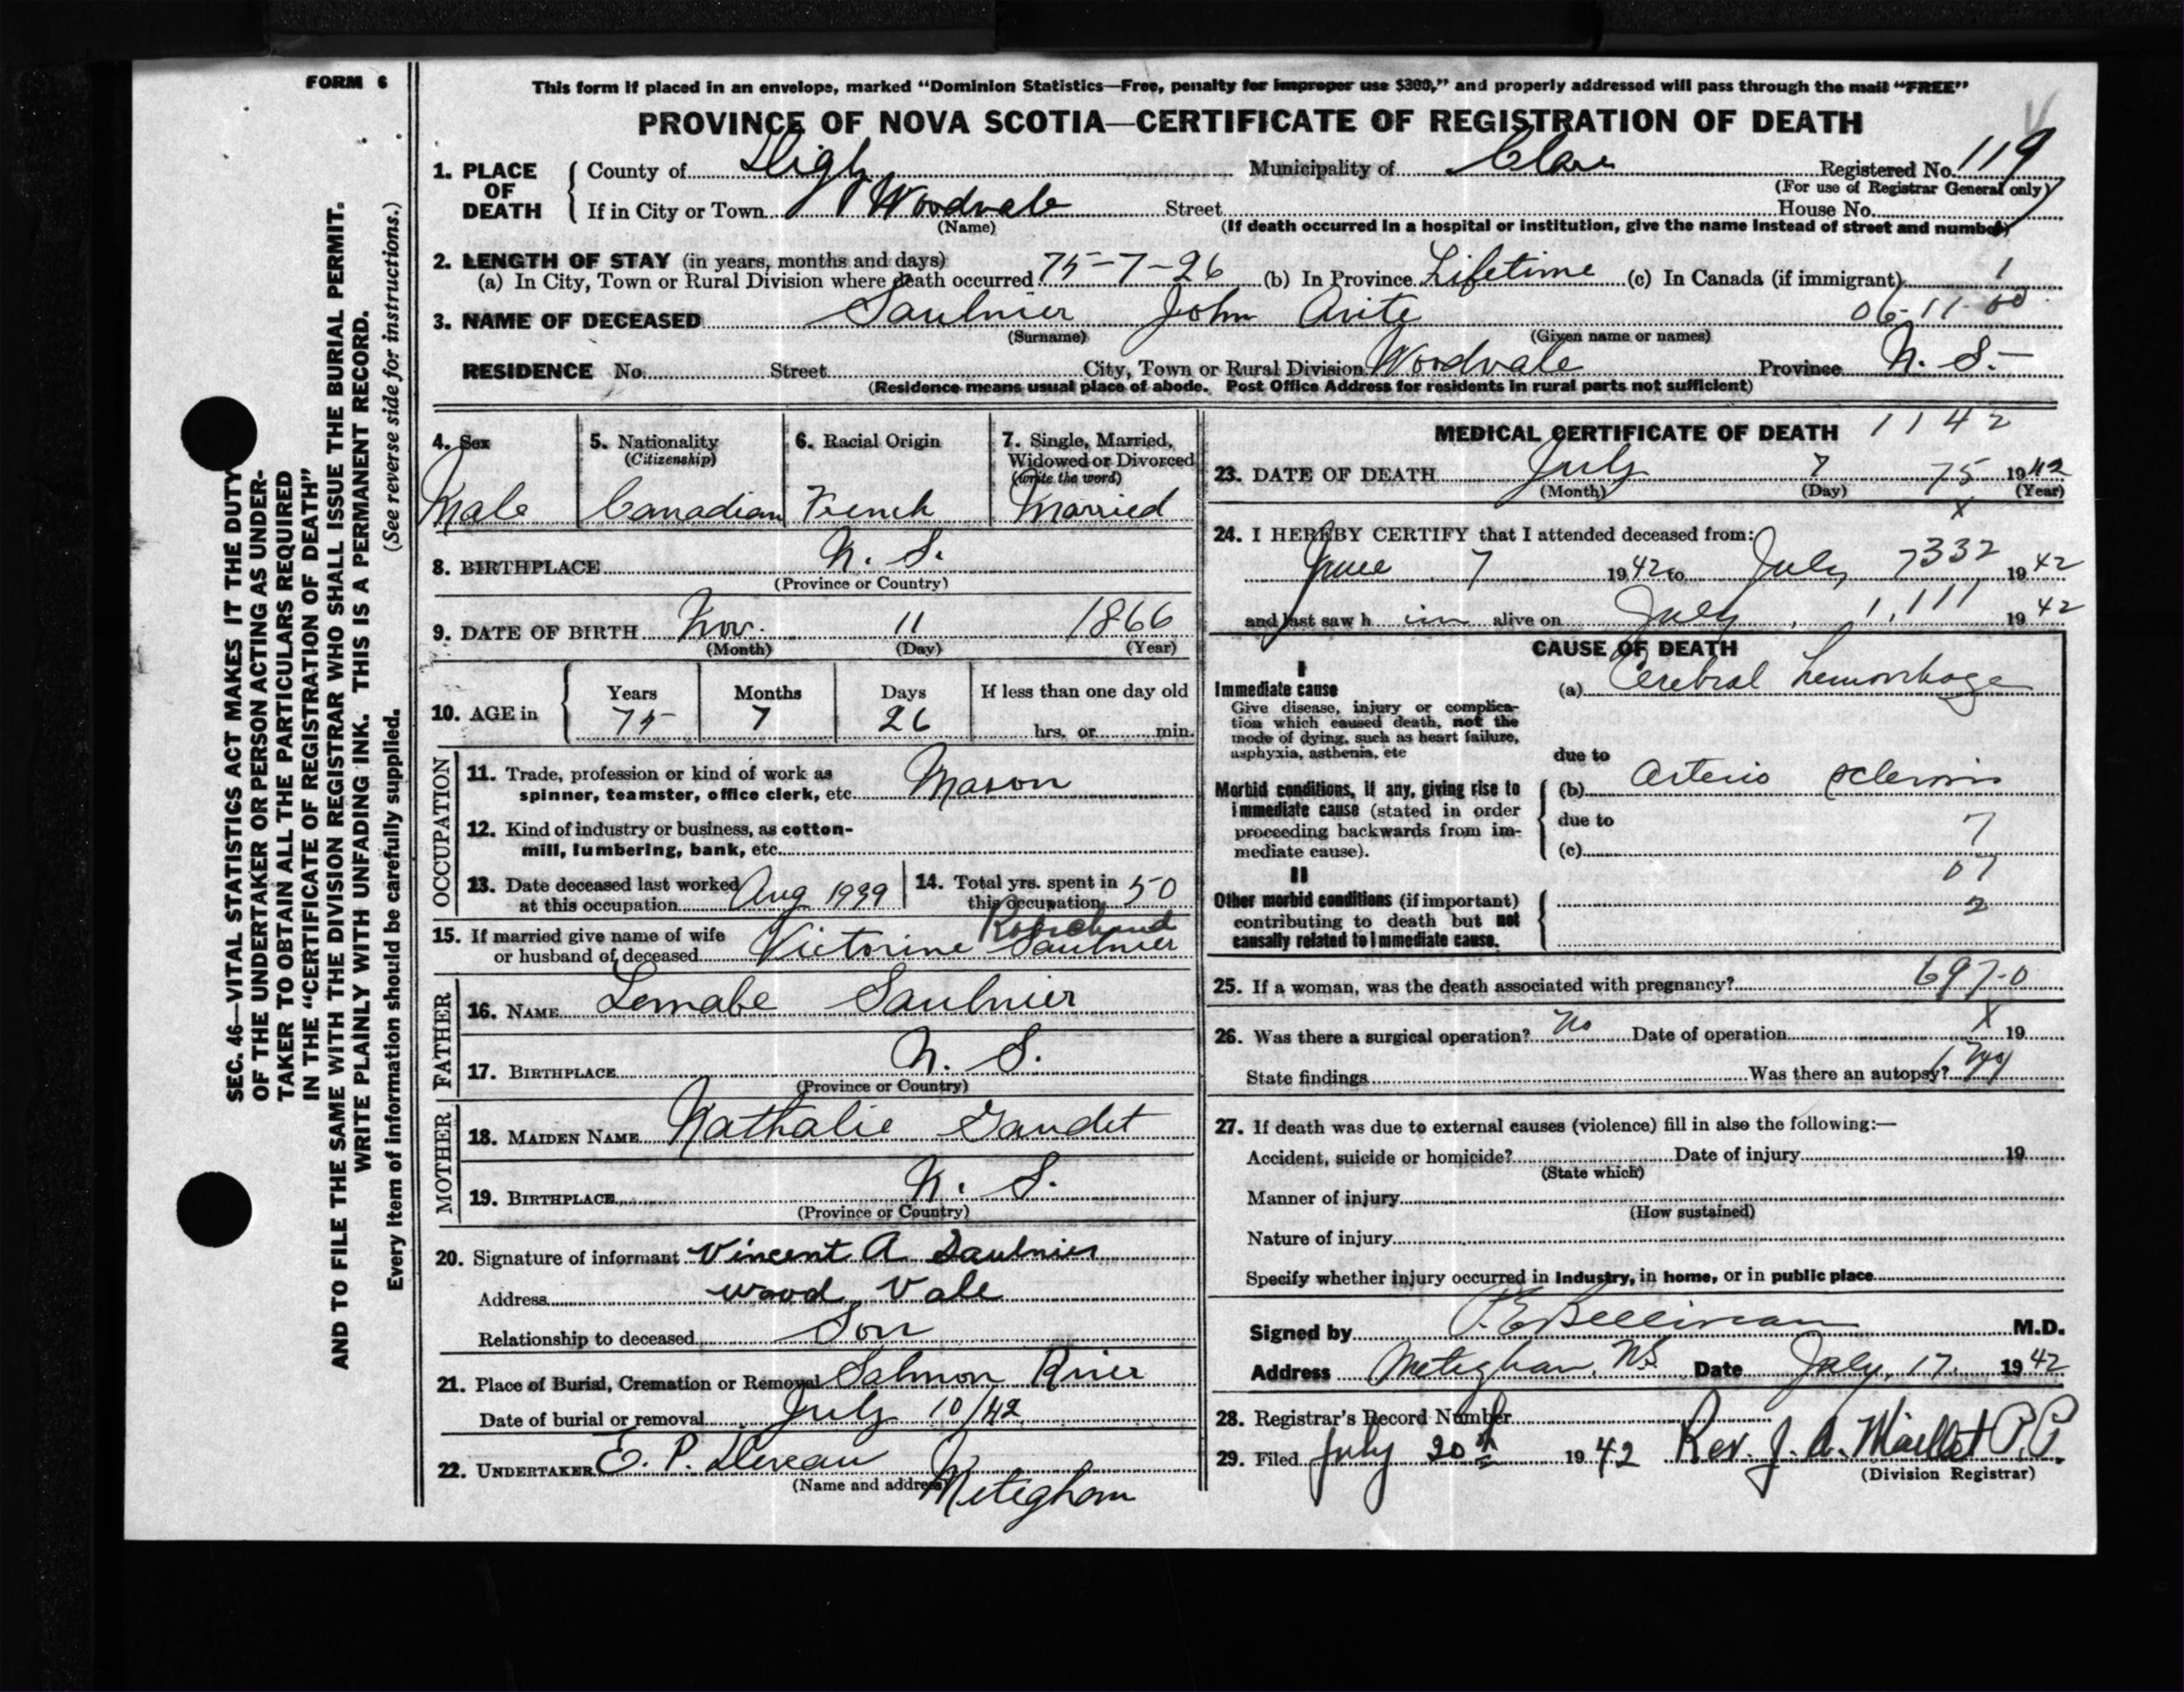 FORM 6
This form if placed in an envelope, marked "Dominion Statistics—Free, penalty for improper use $300," and properly addressed will pass through the mail "FREE"
PROVINCE OF NOVA SCOTIA—CERTIFICATE OF REGISTRATION OF DEATH
1. PLACE OF DEATH County of Digby Municipality of Clare Registered No. 119
(For use of Registrar General only)
If in City or Town Woodvale Street House No.
(Name) (If death occurred in a hospital or institution, give the name instead of street and number)
2. LENGTH OF STAY (in years, months and days)
(a) In City, Town or Rural Division where death occurred 75-7-26 (b) In Province Lifetime (c) In Canada (if immigrant) 1
3. NAME OF DECEASED Saulnier John Avite 06-11-00
(Surname) (Given name or names)
RESIDENCE No. Street City, Town or Rural Division Woodvale Province N. S.
(Residence means usual place of abode. Post Office Address for residents in rural parts not sufficient)
4. Sex
Male
5. Nationality
(Citizenship)
Canadian
6. Racial Origin
French
7. Single, Married,
Widowed or Divorced
(write the word)
Married
8. BIRTHPLACE N. S.
(Province or Country)
9. DATE OF BIRTH Nov. 11 1866
(Month) (Day) (Year)
10. AGE in Years Months Days If less than one day old
75 7 26 hrs. or min.
OCCUPATION
11. Trade, profession or kind of work as
spinner, teamster, office clerk, etc. Mason
12. Kind of industry or business, as cotton-
mill, lumbering, bank, etc.
13. Date deceased last worked
at this occupation Aug 1939
14. Total yrs. spent in
this occupation 50
15. If married give name of wife
or husband of deceased Victorine Robichaud Saulnier
FATHER
16. NAME Lemabe Saulnier
17. BIRTHPLACE N. S.
(Province or Country)
MOTHER
18. MAIDEN NAME Nathalie Gaudet
19. BIRTHPLACE N. S.
(Province or Country)
20. Signature of informant Vincent A Saulnier
Address wood Vale
Relationship to deceased Son
21. Place of Burial, Cremation or Removal Salmon River
Date of burial or removal July 10/42
22. UNDERTAKER E. P. Deveau
(Name and address) Meteghan
MEDICAL CERTIFICATE OF DEATH 1142
23. DATE OF DEATH July 7 75 1942
(Month) (Day) (Year)
x
24. I HEREBY CERTIFY that I attended deceased from:
June 7 1942 to July 7 332 1942
and last saw h im alive on July 1, 111 1942
CAUSE OF DEATH
I
Immediate cause
Give disease, injury or complica-
tion which caused death, not the
mode of dying, such as heart failure,
asphyxia, asthenia, etc
(a) Cerebral hemorrhage
due to
Morbid conditions, if any, giving rise to
immediate cause (stated in order
proceeding backwards from im-
mediate cause).
(b) Arterio sclerosis
due to
(c)
7
07
2
II
Other morbid conditions (if important)
contributing to death but not
causally related to immediate cause.
25. If a woman, was the death associated with pregnancy? 697-0
26. Was there a surgical operation? No Date of operation X 19
State findings Was there an autopsy?
27. If death was due to external causes (violence) fill in also the following:—
Accident, suicide or homicide? Date of injury 19
(State which)
Manner of injury
(How sustained)
Nature of injury
Specify whether injury occurred in Industry, in home, or in public place
Signed by P. E Belliveau M.D.
Address Meteghan, N.S. Date July, 17. 1942
28. Registrar's Record Number
29. Filed July 20th 1942 Rev. J. A. Maillet P.P.
(Division Registrar)
SEC. 46—VITAL STATISTICS ACT MAKES IT THE DUTY
OF THE UNDERTAKER OR PERSON ACTING AS UNDER-
TAKER TO OBTAIN ALL THE PARTICULARS REQUIRED
IN THE "CERTIFICATE OF REGISTRATION OF DEATH"
AND TO FILE THE SAME WITH THE DIVISION REGISTRAR WHO SHALL ISSUE THE BURIAL PERMIT.
WRITE PLAINLY WITH UNFADING INK. THIS IS A PERMANENT RECORD.
Every item of information should be carefully supplied. (See reverse side for instructions.)